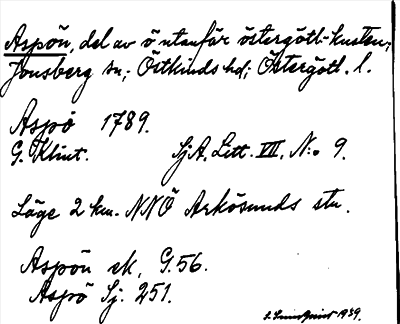 Aspön, del av ö utanför östergötl-kusten;
Jonsberg sn.; Östkinds hd; Östergötl. l.
Aspö 1789.
G. Klint. SjA, Litt. VII, N:o 9.
Läge 2 km. NNÖ Arkösunds stn.
Aspön ek, G.56.
Aspö Sj. 251.
1939.